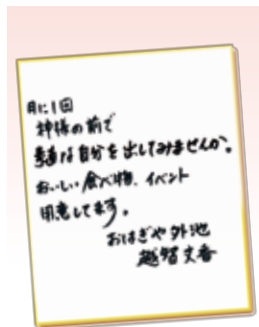 月に1回
神様の前で
素直な自分を出してみませんか。
おいしい食べ物、イベント
用意してます。
おはぎや外池
越智文香